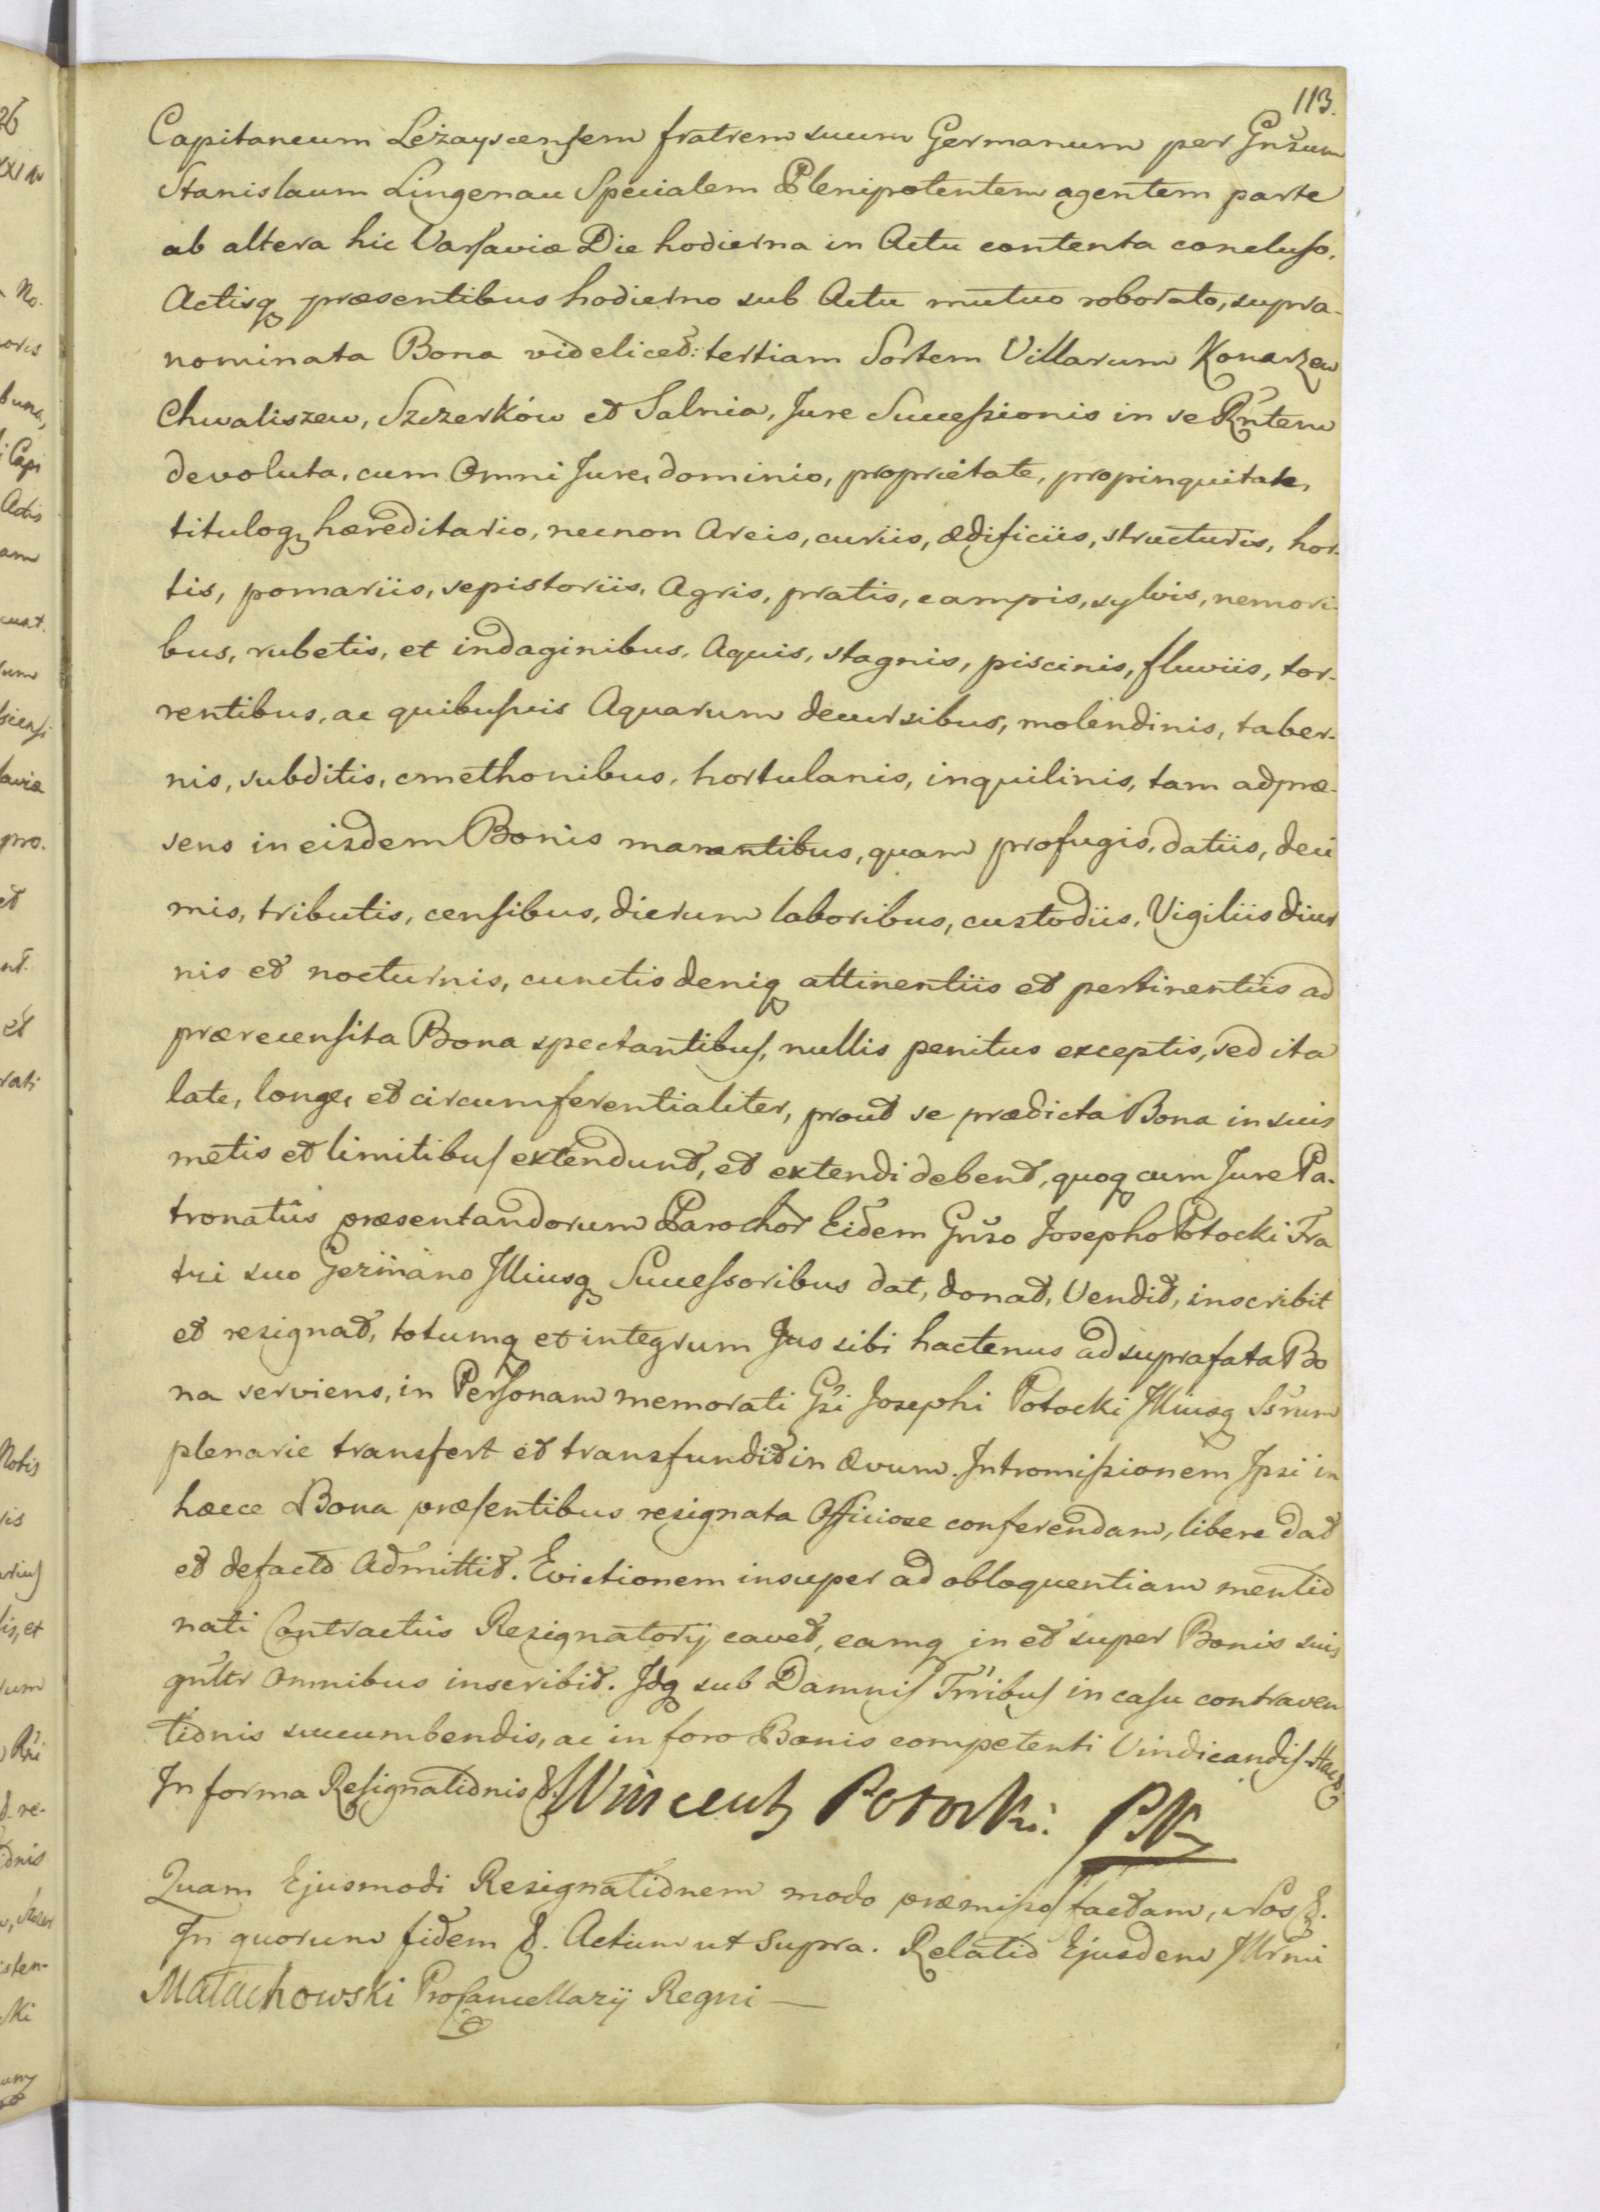 113.
Capitaneum Leżayscensem fratrem suum Germanum per Gnsum
Stanislaum Lingenau Specialem Plenipotentem agentem parte
ab altera hic Varsaviæ Die hodierna in Actu contenta concluso,
Actisq præsentibus hodierno sub Actu mutuo roborato, supra-
nominata Bona videlicet: tertiam Sortem Villarum Konarzew
Chwaliszew, Szczerków et Salnia, Jure Successionis in se Rntem
devoluta, cum Omni Jure, dominio, proprietate, propinquitate,
tituloq hæreditario, necnon Areis, curiis, ædificiis, structuris, hor-
tis, pomariis, sepistoriis, Agris, pratis, campis, sylvis, nemori-
bus, rubetis, et indaginibus, Aquis, stagnis, piscinis, fluviis, tor-
rentibus, ac quibusvis Aquarum decursibus, molendinis, taber-
nis, subditis, cmethonibus, hortulanis, inquilinis, tam adpræ-
sens in eisdem Bonis manentibus, quam profugis, datiis, deci
mis, tributis, censibus, dierum laboribus, custodiis, Vigiliis diur
nis et nocturnis, cunctis deniq attinentiis et pertinentiis ad
prærecensita Bona spectantibus, nullis penitus exceptis, sed ita
late, longe, et circumferentialiter, prout se prædicta Bona in suis
metis et limitibus extendunt, et extendi debent, quoq cum Jure Pa-
tronatûs præsentandorum Parochor Eidem Gnso Josepho Potocki Fra
tri suo Germano Illiusq Successoribus dat, donat, Vendit, inscribit
et resignat, totumq et integrum Jus sibi hactenus ad suprafata Bo
na serviens, in Personam memorati Gsi Josephi Potocki Illiusq Ssrum
plenarie transfert et transfundit in ævum. Intromissionem Ipsi in
hæce Bona præsentibus resignata Officiose conferendam, libere dat
et defacto Admittit. Evictionem insuper ad obloquentiam mentio
nati Contractûs Resignatorij cavet, eamq in et super Bonis suis
gnltr Omnibus inscribit. Idq sub Damnis Trribus in casu contraven
tionis succumbendis, ac in foro Bonis competenti Vindicandis Hac
In forma Resignationis &. Wincenty Potocki. PK
Quam Ejusmodi Resignationem modo præmisso factam, Nos &.
In quorum fidem &. Actum ut Supra. Relatio Ejusdem Illrmi
Małachowski ProCancellarij Regni —